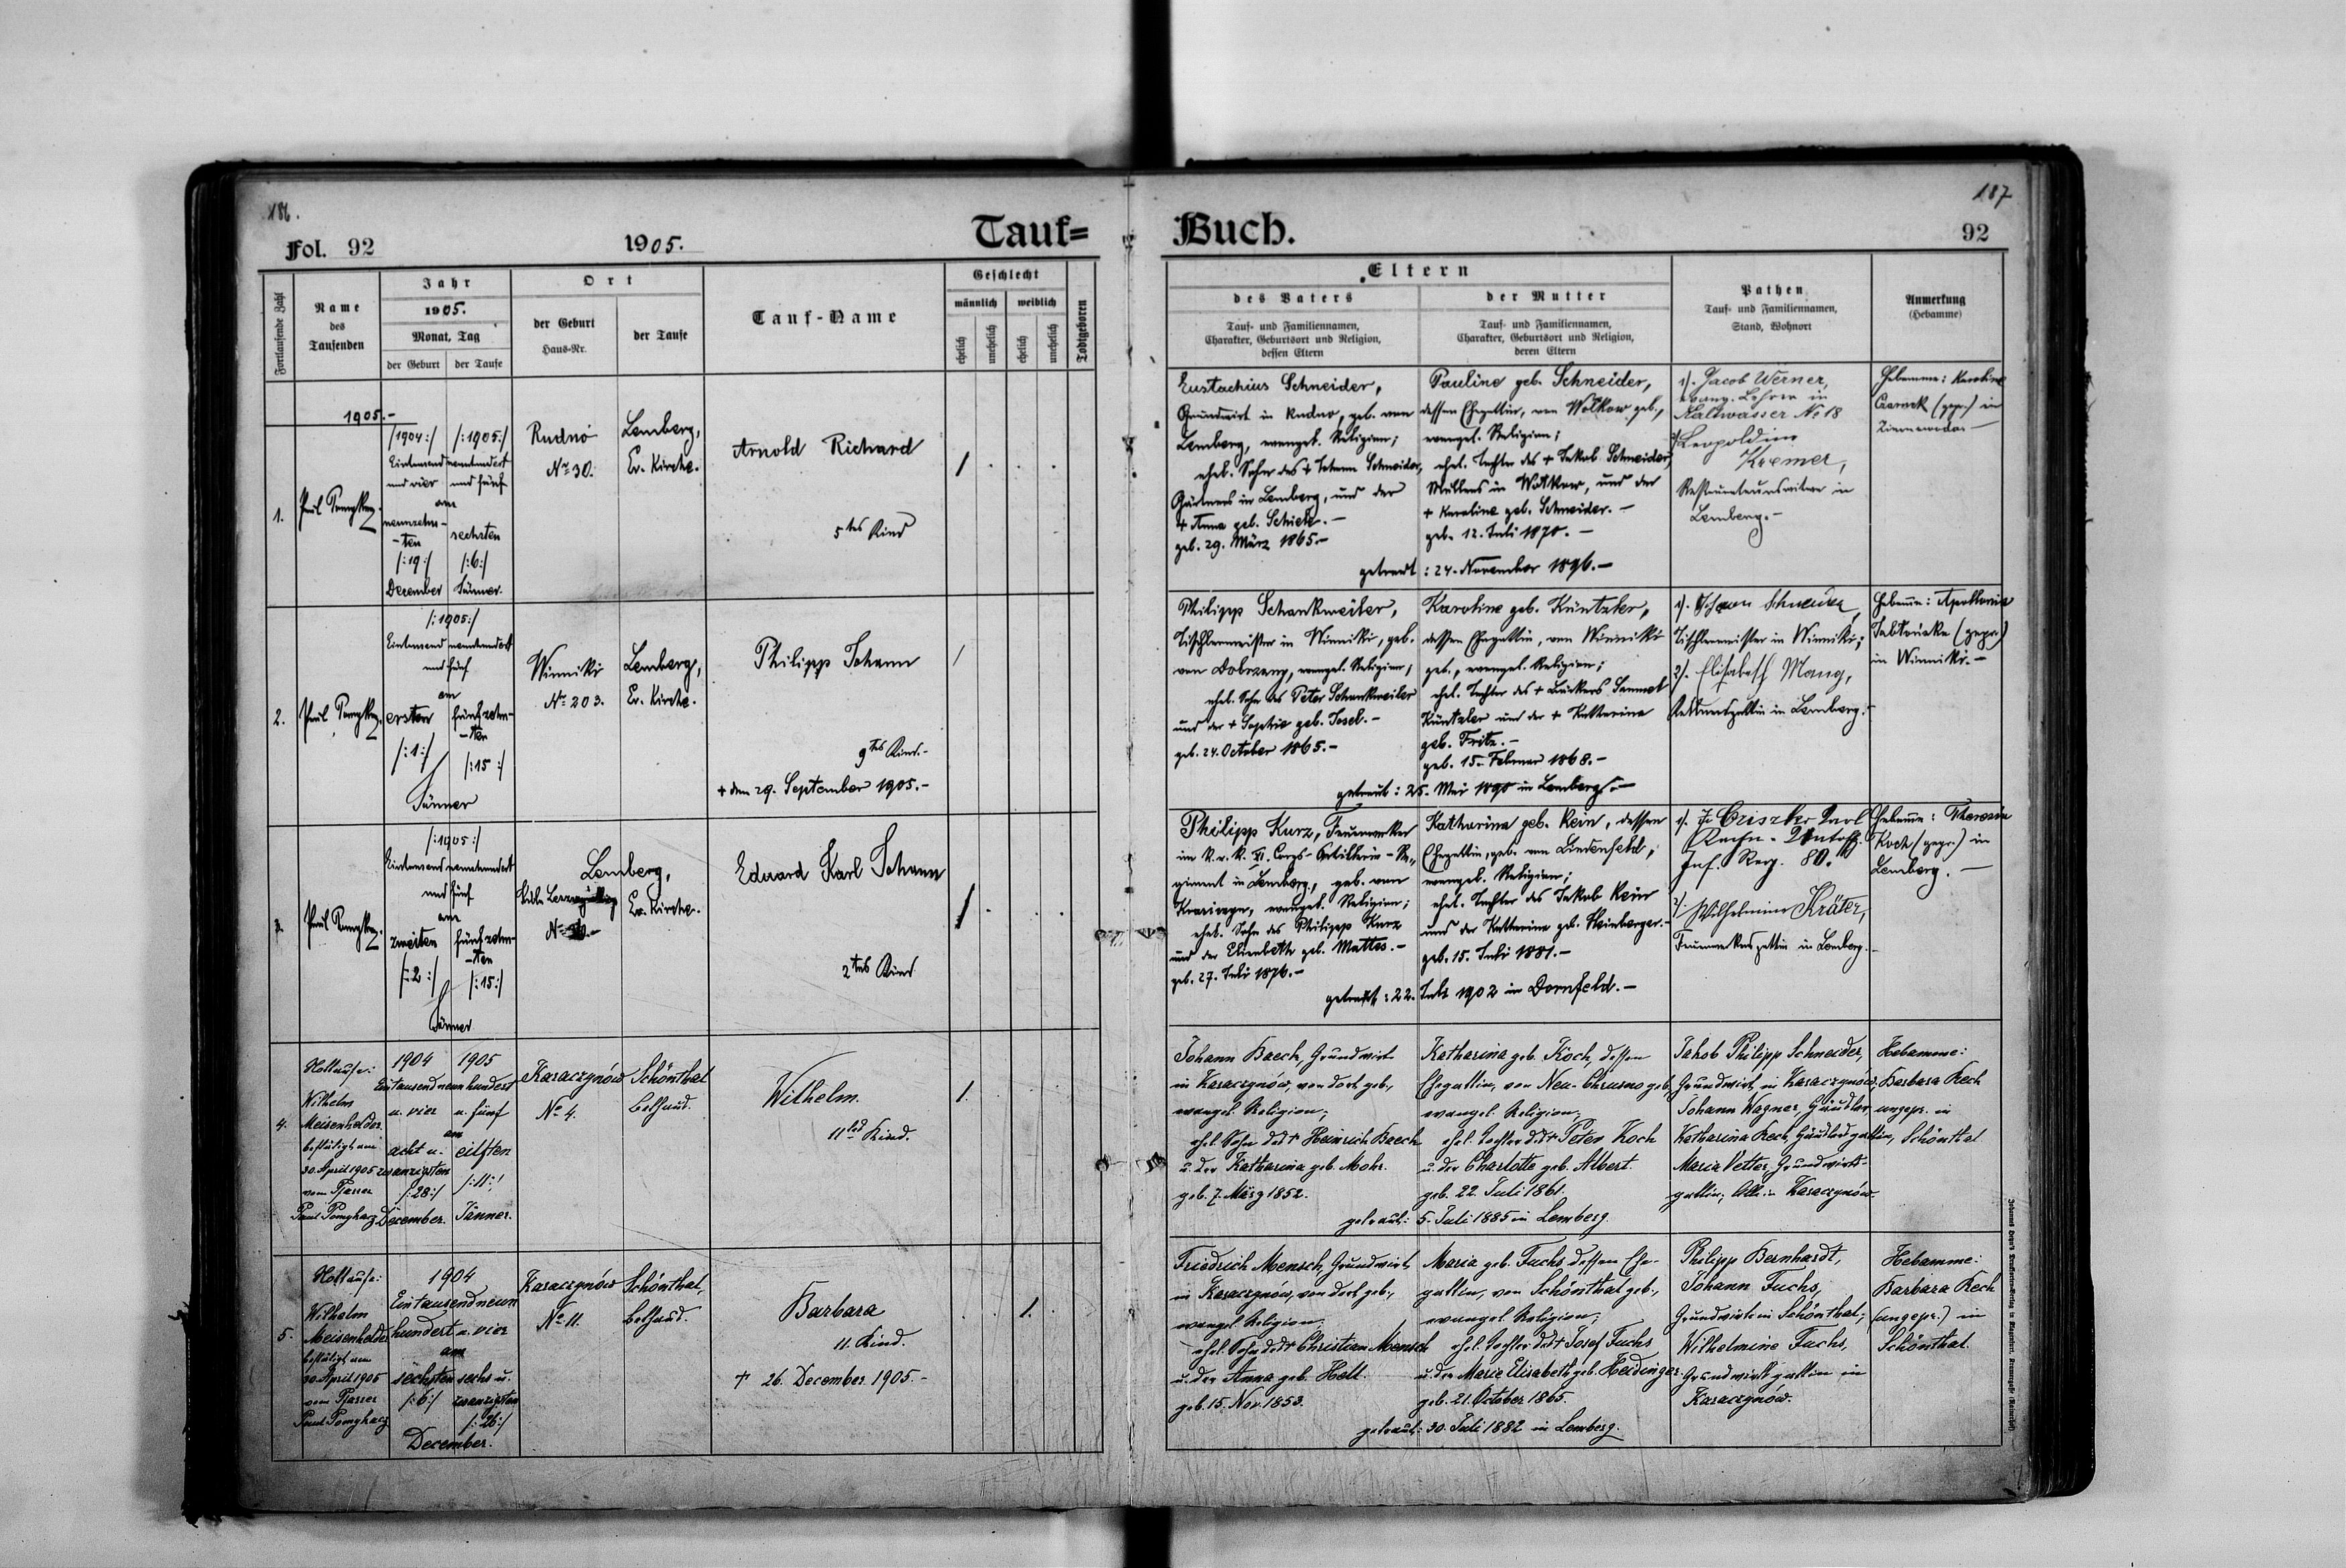 186.
187
Fol. 92
1905.
Tauf=
Buch.
92
Fortlaufende Zahl
Name
des
Taufenden
Jahr
1905.
Monat, Tag
der Geburt
der Taufe
Ort
der Geburt
Haus-Nr.
der Taufe
Tauf-Name
Geschlecht
männlich
weiblich
ehelich
unehelich
ehelich
unehelich
Todtgeboren
Eltern
des Vaters
Tauf- und Familiennamen,
Charakter, Geburtsort und Religion,
dessen Eltern
der Mutter
Tauf- und Familiennamen,
Charakter, Geburtsort und Religion,
deren Eltern
Pathen
Tauf- und Familiennamen,
Stand, Wohnort
Anmerkung
(Hebamme)
1905.-
1.
/1904:/ /:1905:/
Eintausend neunhundert
und vier und fünf
am
neunzehn-
-ten sechsten
/:19:/ /:6:/
December Jänner.
Rudno
No 30.
Lemberg,
Ev. Kirche.
Arnold Richard
5tes Kind
Eustachius Schneider,
Grundwirt in Rudno, geb. von
Lemberg, evangel. Religion;
ehel. Sohn des + Johann Schneider,
Gärtners in Lemberg, und der
+ Anna geb. Schick.-
geb. 29. März 1865.-
Pauline geb. Schneider,
dessen Ehegattin, von Wolkow geb.,
evangel. Religion;
ehel. Tochter des + Jakob Schneider,
Müllers in Wolkow, und der
+ Karoline geb. Schneider.-
geb. 12. Juli 1870.-
getraut: 24. November 1896.-
1). Jacob Werner,
evang. Lehrer in
Kaltwasser No 18
Leopoldine
Kremer,
in
Lemberg.-
Hebamme: Karoline
(gepr.) in
2.
/:1905:/
Eintausend neunhundert
und fünf
am
ersten fünfzehn-
-ten
/:1:/ /:15:/
Jänner
Winniki
No 203.
Lemberg,
Ev. Kirche.
Philipp Johann
9tes Kind.-
+ den 29. September 1905.-
Philipp Schankweiler,
Tischlermeister in Winniki, geb.
von , evangel. Religion;
ehel. Sohn des Peter Schankweiler
und der + Sophie geb. Josel.-
geb. 24. October 1865.-
Karoline geb. Küntzler,
dessen Ehegattin, von Winniki
geb., evangel. Religion;
ehel. Tochter des + Bäckers Samuel
Küntzler und der + Katharina
geb. Fritz.-
geb. 15. Februar 1868.-
getraut: 25. Mai 1890 in Lemberg.-
1). Johann Schneider,
Tischlermeister in Winniki;
2). Elisabeth Mang,
in Lemberg.-
Hebamme: Apollonia
(gepr.)
in Winniki.-
3.
/:1905:/
Eintausend neunhundert
und fünf
am
zweiten fünfzehn-
-ten
/:2:/ /:15:/
Jänner
Lemberg,
Ev. Kirche.
Eduard Karl Johann
2tes Kind
Philipp Kurz, Feuerwerker
im K. u. K. XI. Corps-Artillerie-Re-
giment in Lemberg, geb. von
evangel. Religion;
ehel. Sohn des Philipp Kurz
und der Elisabeth geb. Mattes.-
geb. 27. Juli 1876.-
Katharina geb. Rein, dessen
Ehegattin, geb. von Lindenfeld,
evangel. Religion;
ehel. Tochter des Jakob Rein
und der Katharina geb. Steinberger.-
geb. 15. Juli 1881.-
getraut: 22. Juli 1902 in Dornfeld.-
Inf. Reg. 80.
2). Wilhelmine Kräter,
Feuerwerkersgattin in Lemberg.-
Hebamme: Theresia
Koch (gepr.) in
Lemberg.-
4.
Nottaufe:
Wilhelm
Meisenhelder
bestätigt am
30. April 1905
vom Pfarrer
Paul Pomykacz
1904 1905
Eintausend neunhundert
u. vier u. fünf
am
acht u. eilften
zwanzigsten
/:28:/ /:11:/
December. Jänner.
Karaczynów
No 4.
Schönthal
Bethaus.
Wilhelm.
11tes Kind.
1.
Johann Baech, Grundwirt
in Karaczynów, von dort geb.,
evangel. Religion;
ehel. Sohn des + Heinrich Baech
u. der Katharina geb. Mohr.
geb. 7. März 1852.
Katharina geb. Koch, dessen
Ehegattin, von Neu-Chrusno geb.,
evangel. Religion;
ehel. Tochter des + Peter Koch
u. der Charlotte geb. Albert.
geb. 22. Juli 1861.
getraut: 5. Juli 1885 in Lemberg.
Jakob Philipp Schneider,
Grundwirt in Karaczynów,
Johann Wagner,
Katharina Rech,
Maria Vetter, Grundwirts-
gattin; Alle in Karaczynów.
Hebamme:
Barbara Rech
ungepr. in
Schönthal
5.
Nottaufe:
Wilhelm
Meisenhelder
bestätigt am
30. April 1905
vom Pfarrer
Paul Pomykacz
1904
Eintausendneun
hundert u. vier
am
sechsten sechs u.
/:6:/ zwanzigsten
/:26:/
December.
Karaczynów
No 11.
Schönthal,
Bethaus.
Barbara
11. Kind.
† 26. December 1905.-
1.
Friedrich Mensch, Grundwirt
in Karaczynów, von dort geb.,
evangel. Religion;
ehel. Sohn des + Christian Mensch
u. der Anna geb. Hell.
geb. 15. Nov. 1853.
Maria geb. Fuchs dessen Ehe-
gattin, von Schönthal geb.,
evangel. Religion;
ehel. Tochter des + Josef Fuchs
u. der Maria Elisabeth geb. Heidinger
geb. 21. October 1865.
getraut: 30. Juli 1882 in Lemberg.
Philipp Bernhardt,
Johann Fuchs,
Grundwirte in Schönthal;
Wilhelmine Fuchs,
Grundwirtsgattin in
Karaczynów.
Hebamme:
Barbara Rech
(ungepr.) in
Schönthal.